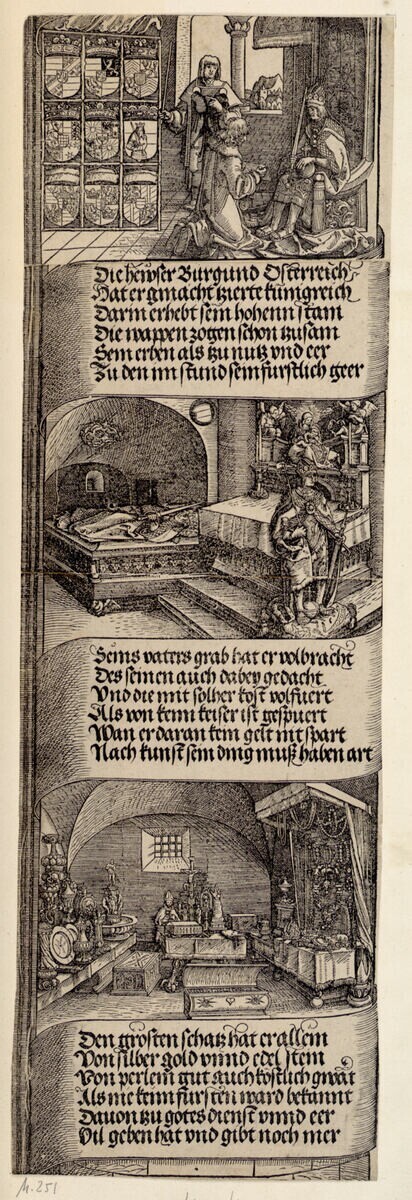 Die hewser Burgund Osterreich
Hat er gmacht tzierte kunigreich
Darin erhebt sein hohenn stam
Die wappen zogen schon tzusam
Sein erben als tzu nutz vnd eer
Zu den im stund sein furstlich geer
Seins vaters grab hat er volbracht
Des seinen auch dabey gedacht
Vnd die mit solher kost volfuert
Als von keim keiser ist gespuert
Wan er daran kein gelt nit spart
Nach kunst sein ding muß haben art
Den grosten schatz hat er allein
Von silber gold vnnd edel stein
Von perlein gut auch kostlich gwat
Als nie kenn fursten ward bekannt
Dauon tzu gotes dienst vnnd eer
Vil geben hat vnd gibt noch mer
M. 251